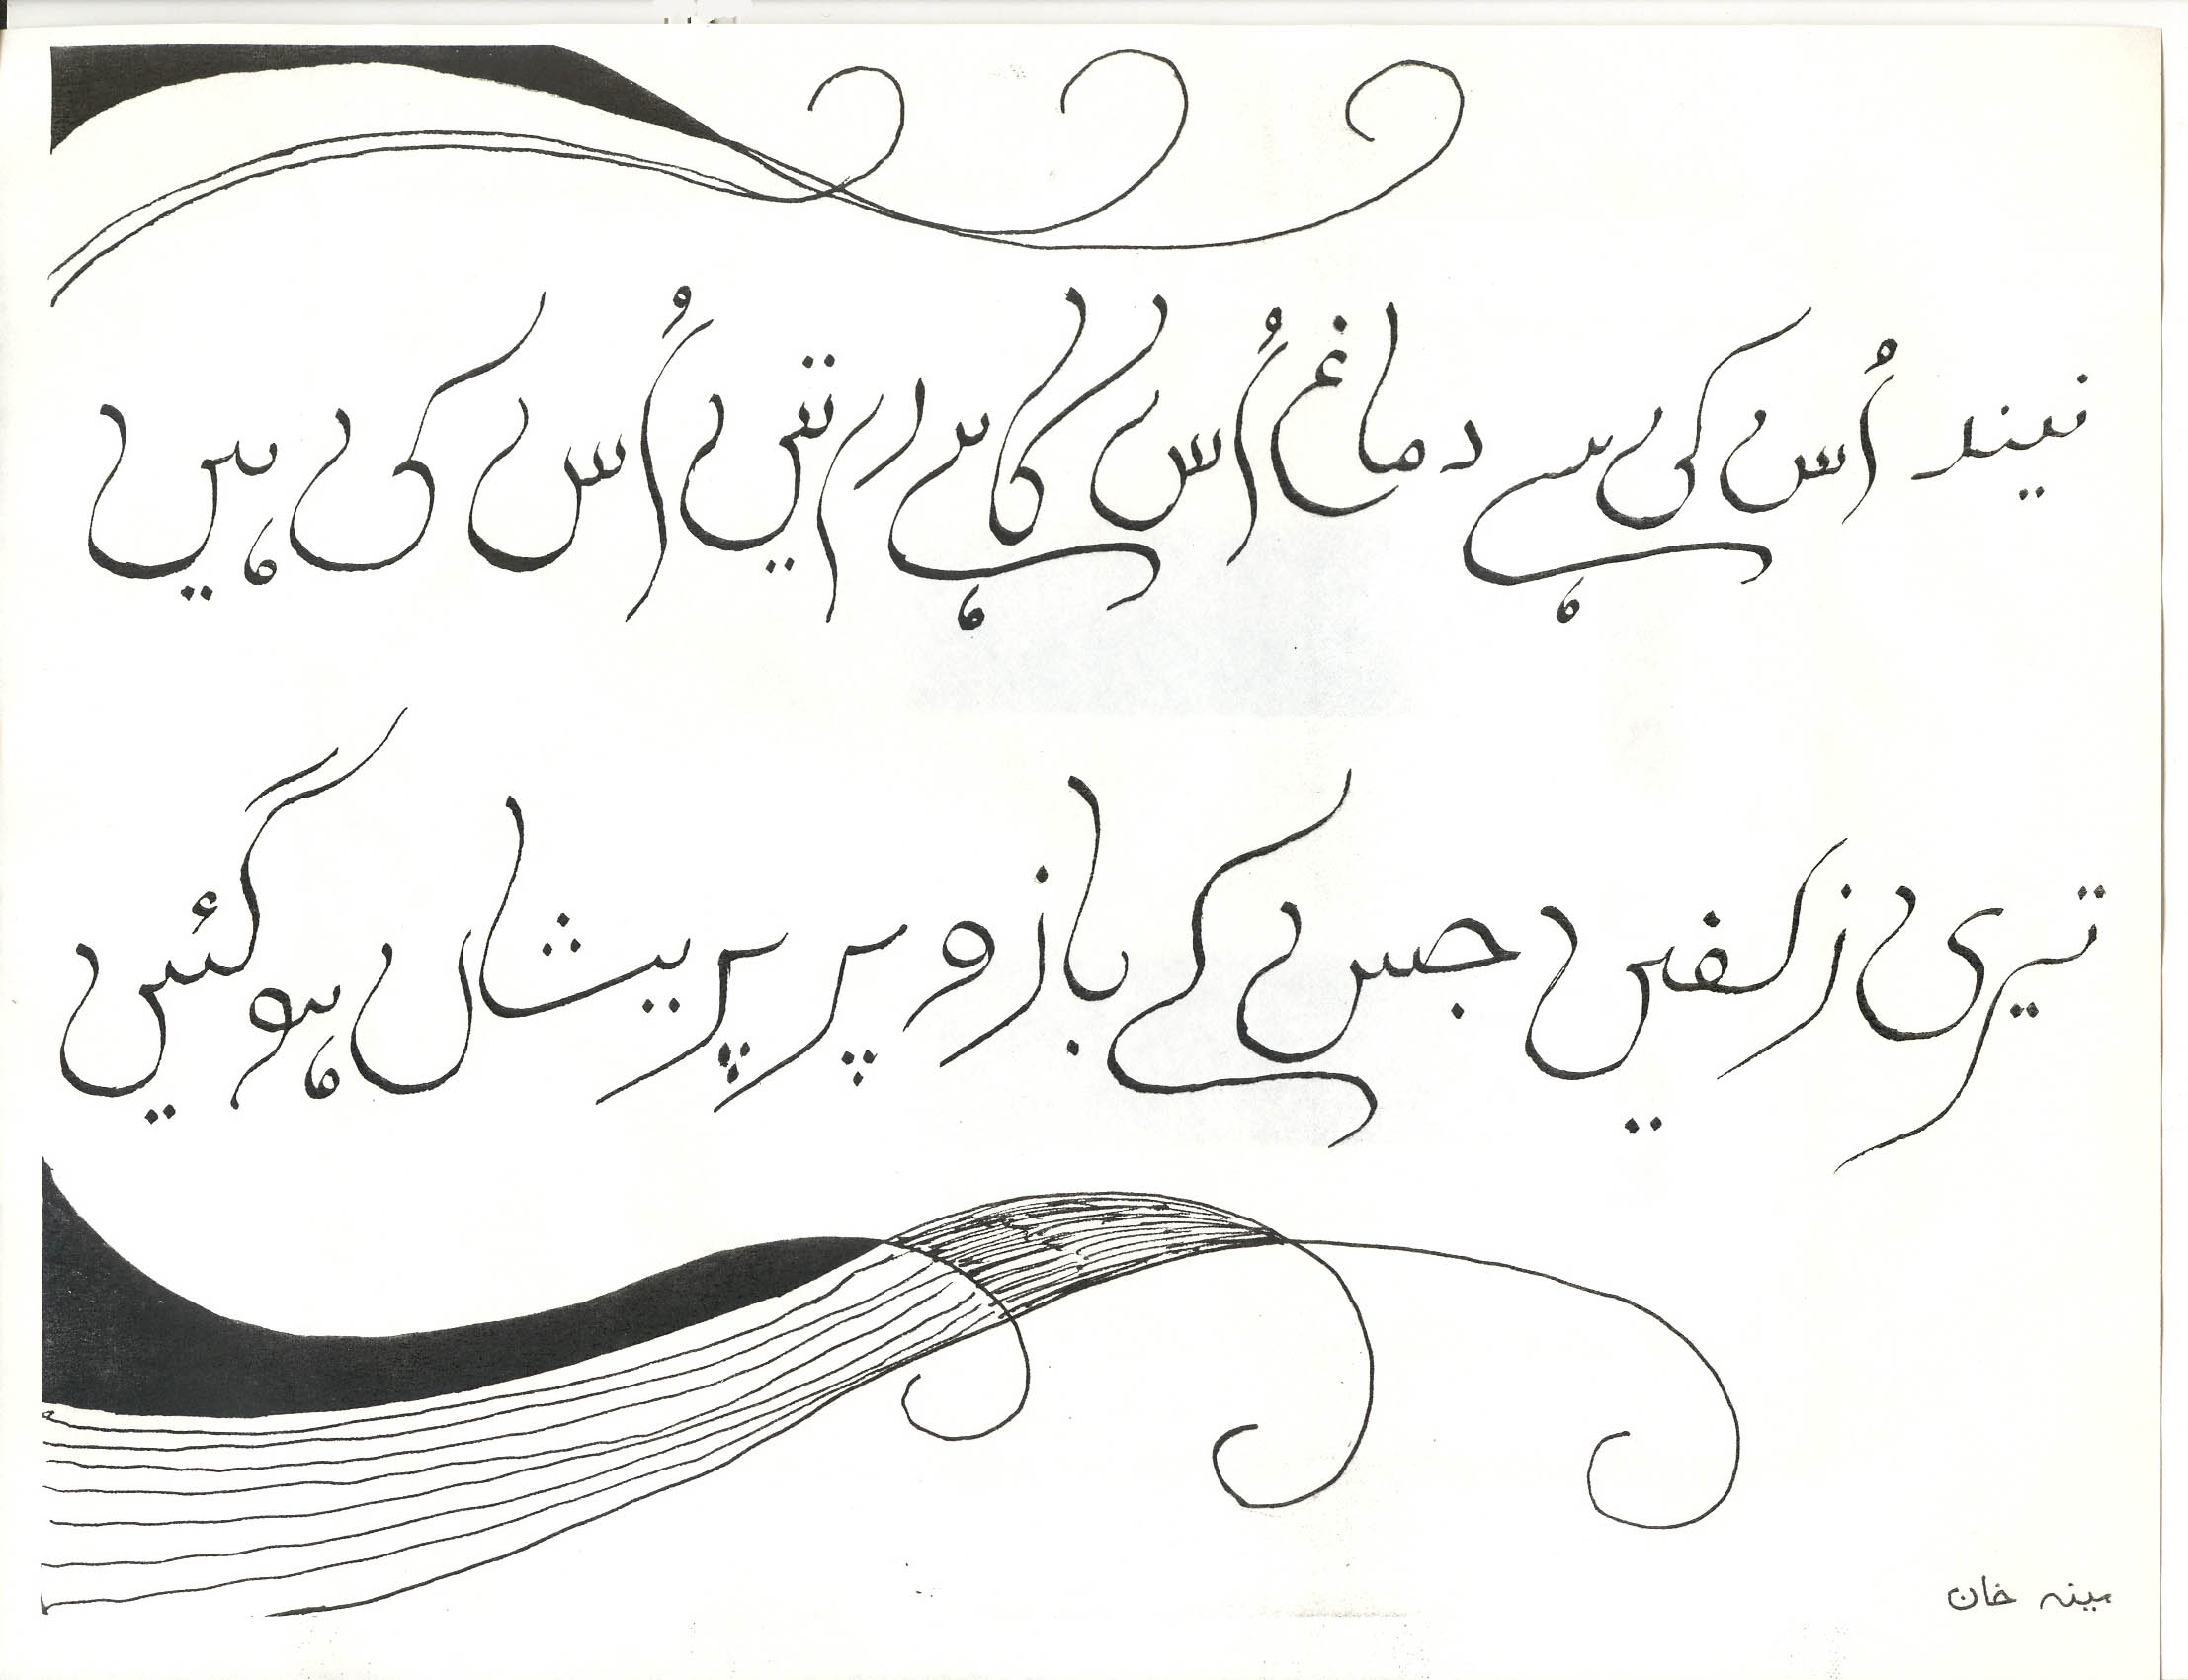 نیند اُس کی ہے دماغ اُس کا ہے راتیں اُس کی ہیں
تیری زلفیں جس کے بازو پر پریشاں ہو گئیں
مینہ خان